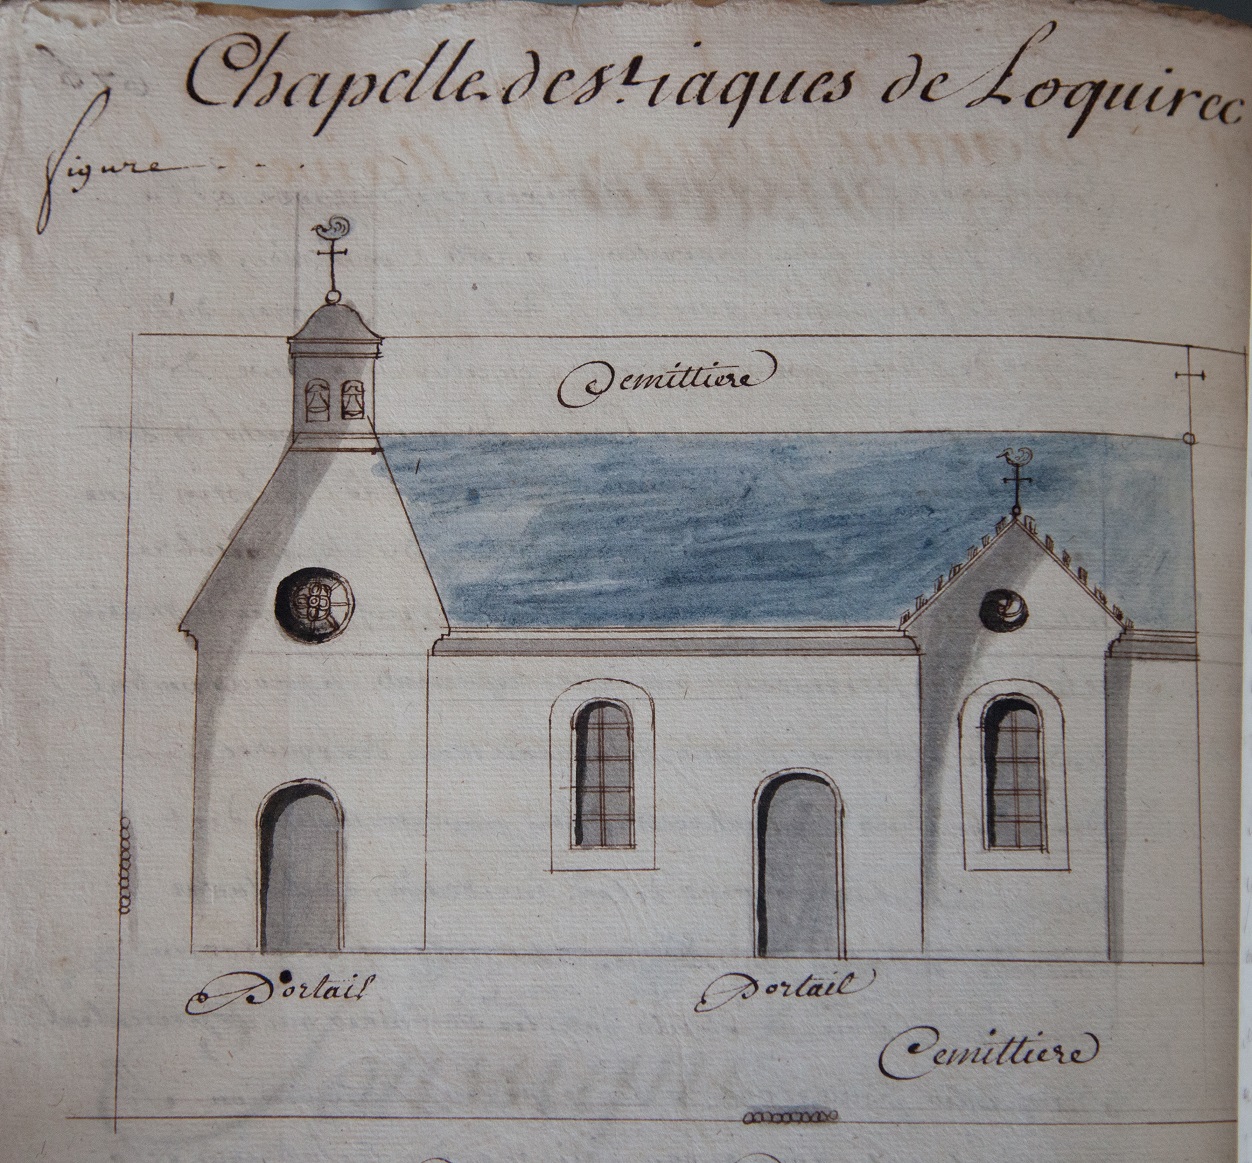 Chapelle de st iaques de Loquirec
figure
Cemittiere
Portail
Portail
Cemittiere